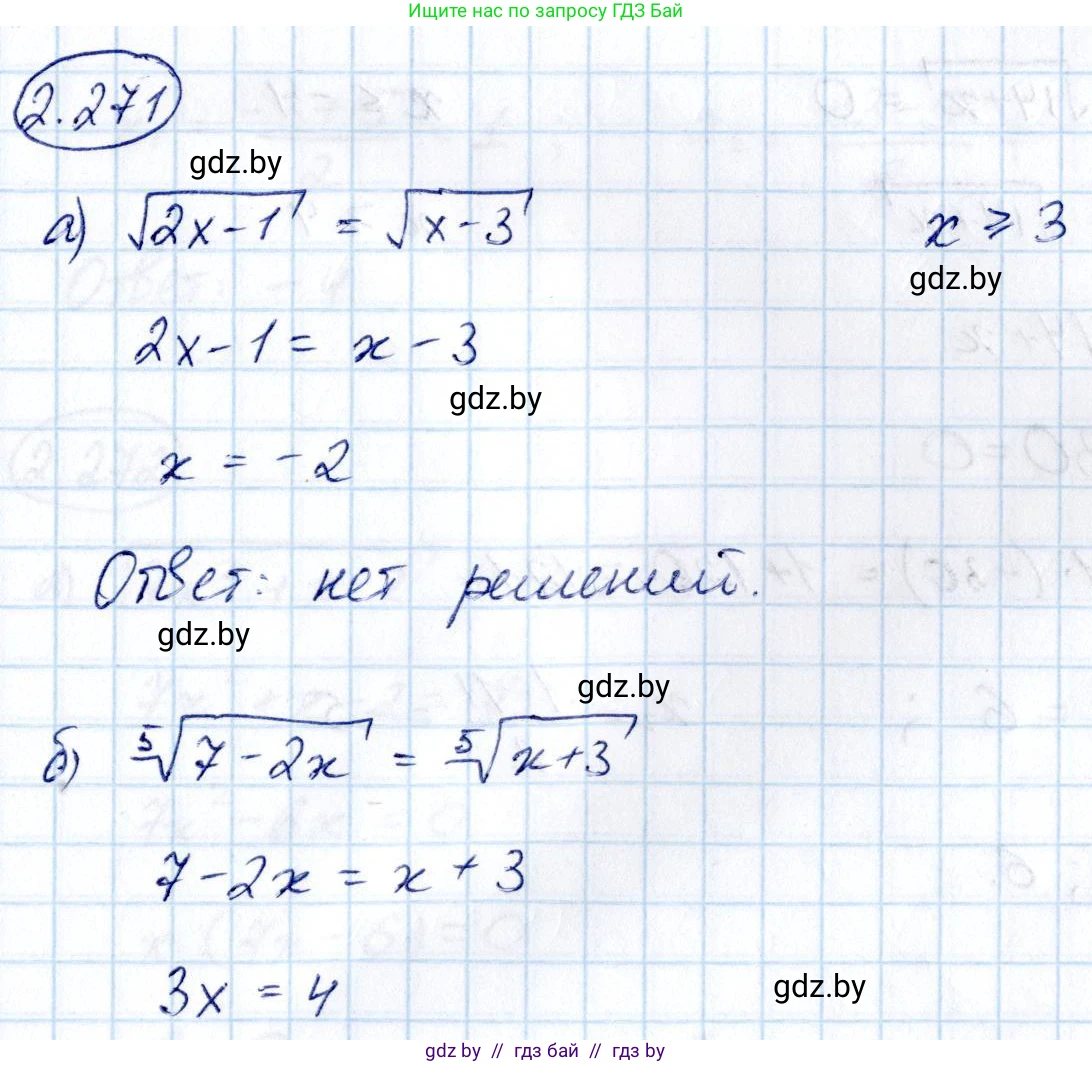 Ищите нас по запросу ГДЗ Бай
2.271
gdz.by
а) √(2x-1) = √(x-3) x ⩾ 3
gdz.by
2x-1 = x-3
gdz.by
x = -2
Ответ: нет решений.
gdz.by
gdz.by
б) ⁵√(7-2x) = ⁵√(x+3)
7-2x = x+3
3x = 4
gdz.by
gdz by // гдз бай // гдз by